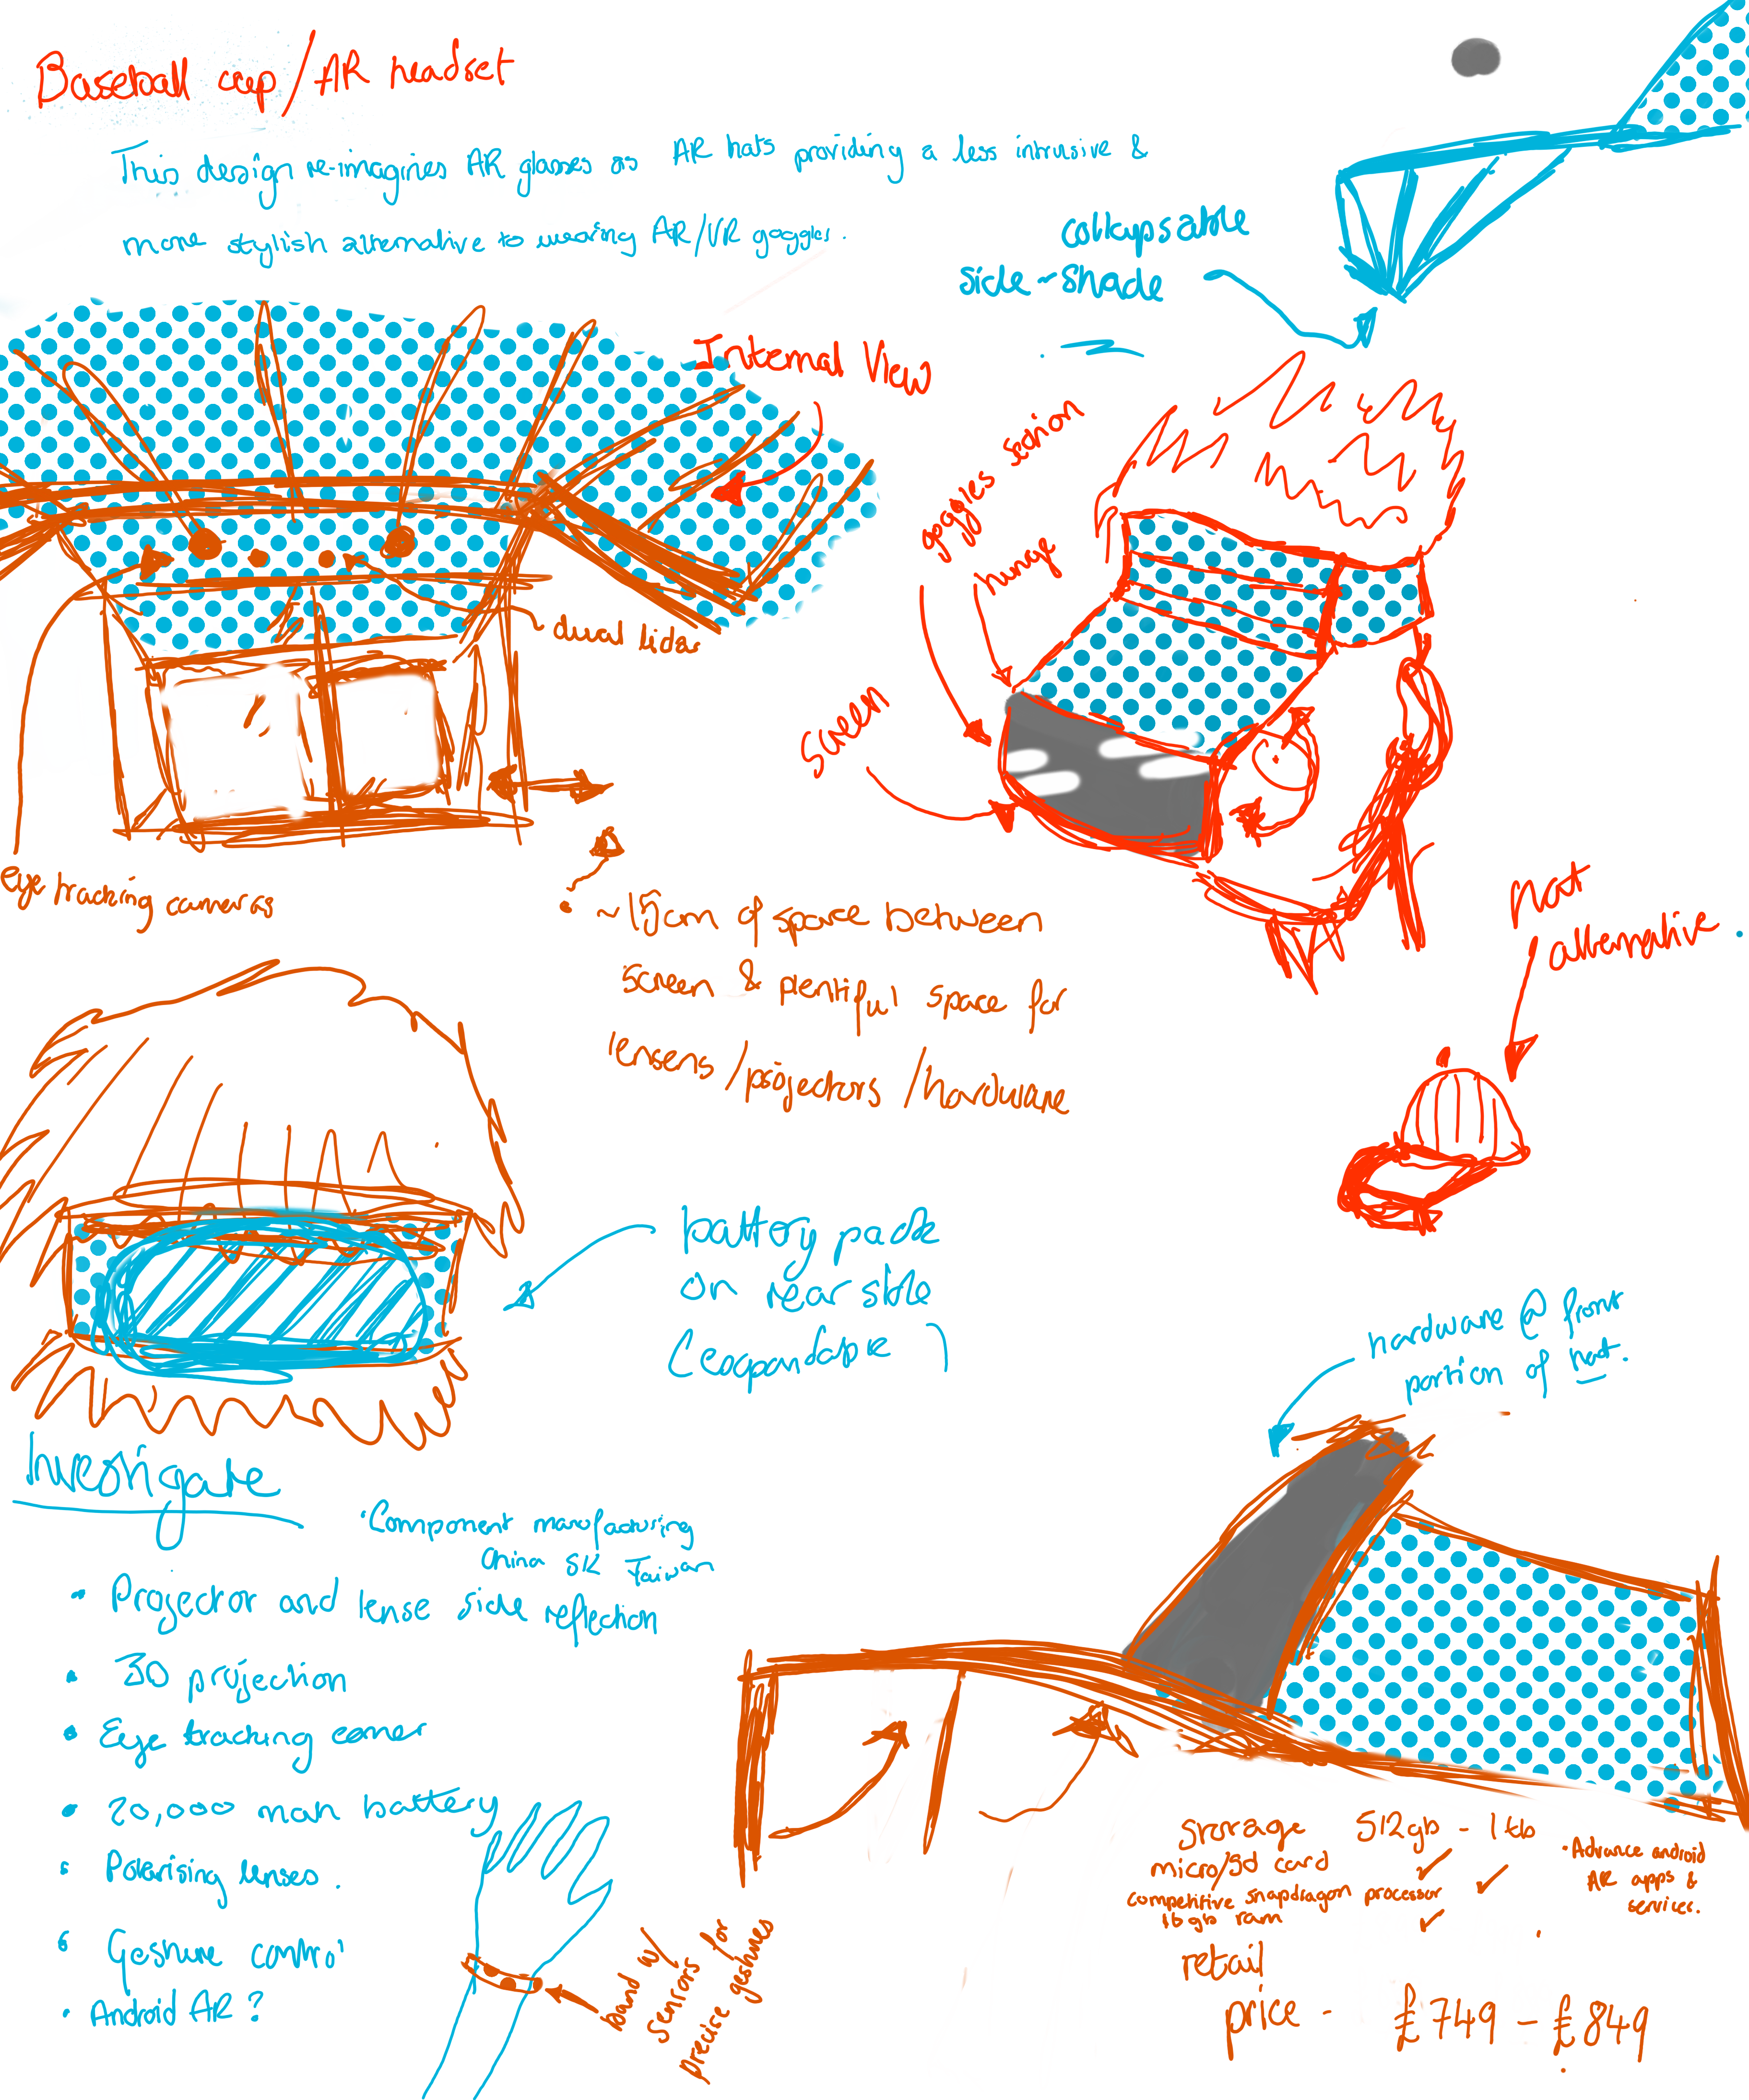 Baseball cap / AR headset
This design re-imagines AR glasses as AR hats providing a less intrusive &
more stylish alternative to wearing AR/VR goggles.
collapsable
side-shade
Internal View
goggles section
hinge
Screen
dual lidar
eye tracking cameras
~15cm of space between
screen & plentiful space for
lensens / projectors / hardware
hat
alternative
battery pack
on rear side
hardware @ front
portion of hat.
Investigate
• Component manufacturing
China SK Taiwan
• Projector and lense side reflection
• 3D projection
• Eye tracking
• 20,000 mah battery
• Polarising lenses.
• Gesture control
• Android AR?
band w/
sensors for
precise gestures
Storage 512gb - 1tb
micro/sd card
competitive snapdragon processor
16gb ram
• Advance android
AR apps &
services.
retail
price - £749 - £849